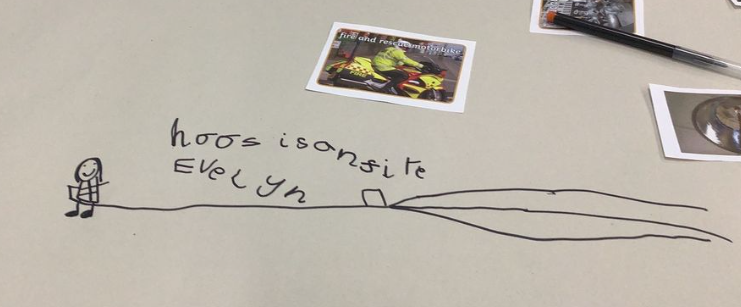 fire and rescue motorbike
hoos isansite
EVELyn